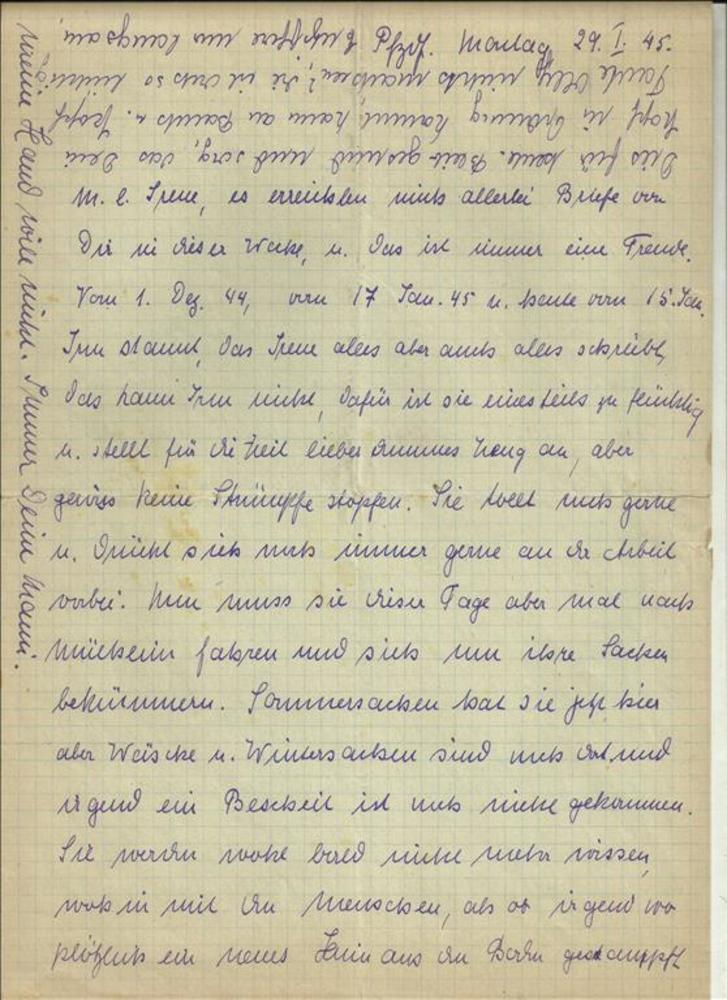 Pfzdf. Montag 29. I. 45.
M. l. Irene, es erreichten mich allerlei Briefe von
Dir in dieser Woche, u. das ist immer eine Freude.
Vom 1. Dez. 44, vom 17 Jan. 45 u. heute vom 15. Jan.
Irm staunt, das Irene alles aber auch alles schreibt,
das kann Irm nicht, dafür ist sie einesteils zu flüchtig
u. stellt für die Zeit lieber dummes Zeug an, aber
gewiss keine Strümpfe stopfen. Sie tollt noch gerne
u. drückt sich noch immer gerne an der Arbeit
vorbei. Nun muss sie dieser Tage aber mal nach
fahren und sich um ihre Sachen
bekümmern. Sommersachen hat sie jetzt hier
aber Wäsche u. Wintersachen sind noch dort und
irgend ein Bescheit ist noch nicht gekommen.
Sie werden wohl bald nicht mehr wissen,
wohin mit den Menschen, als ob irgend wo
plötzlich ein neues Heim aus den Boden gestamppft
Dies für heute. Bleib gesund und sorg, das Dein
Kopf in Ordnung kommt, kann an Bauch u. Kopf
Tante Elly nichts machen?, die ist doch so tüchtig
nur langsam,
meine Hand will nicht. Immer Deine Mami.